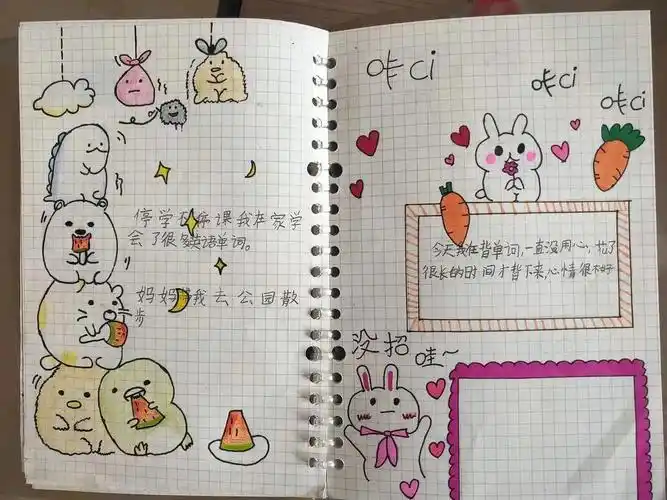 停学不停课我在家学
会了很多英语单词。
妈妈带我去公园散
步
咔ci
咔ci
咔ci
今天我在背单词,一直没用心,花了
很长的时间才背下来心情很不好
没招
哇~